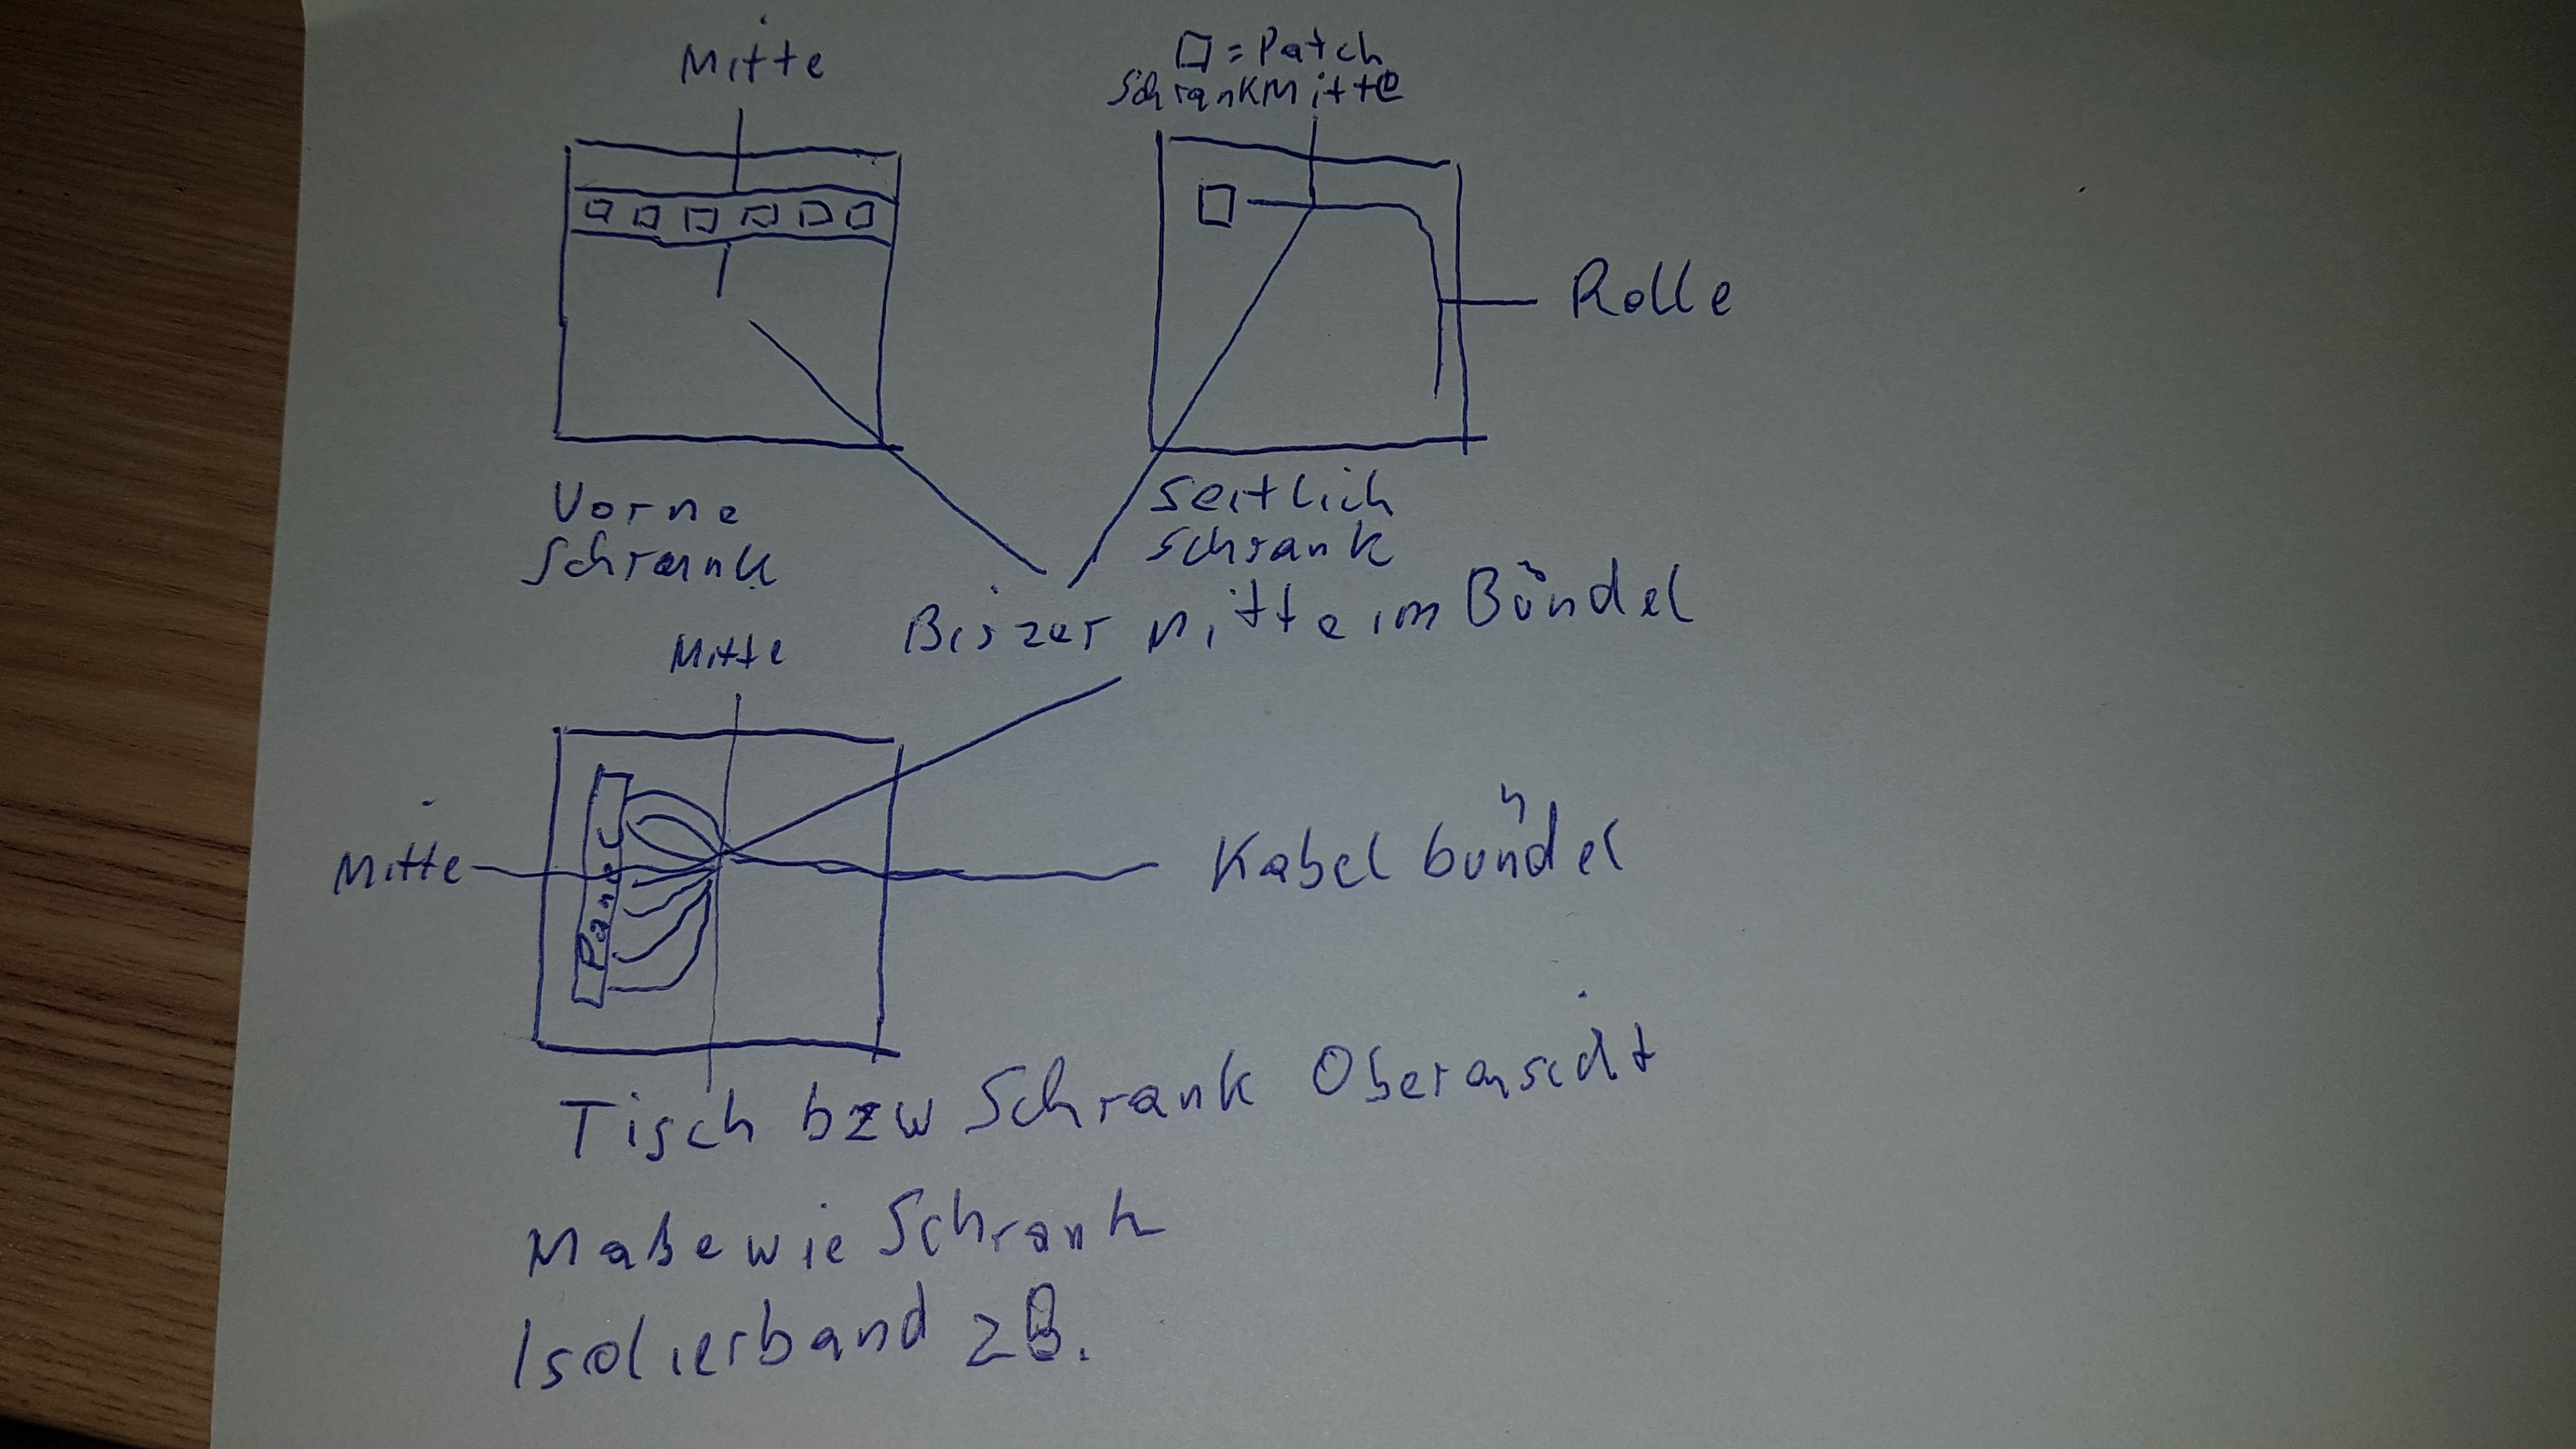 Mitte
□ = Patch
SchrankMitte
Rolle
Vorne
Schrank
seitlich
schrank
Bis zur Mitte im Bündel
Mitte
Mitte
Panel
Kabelbündel
Tisch bzw Schrank Oberansicht
Maße wie Schrank
Isolierband zB.